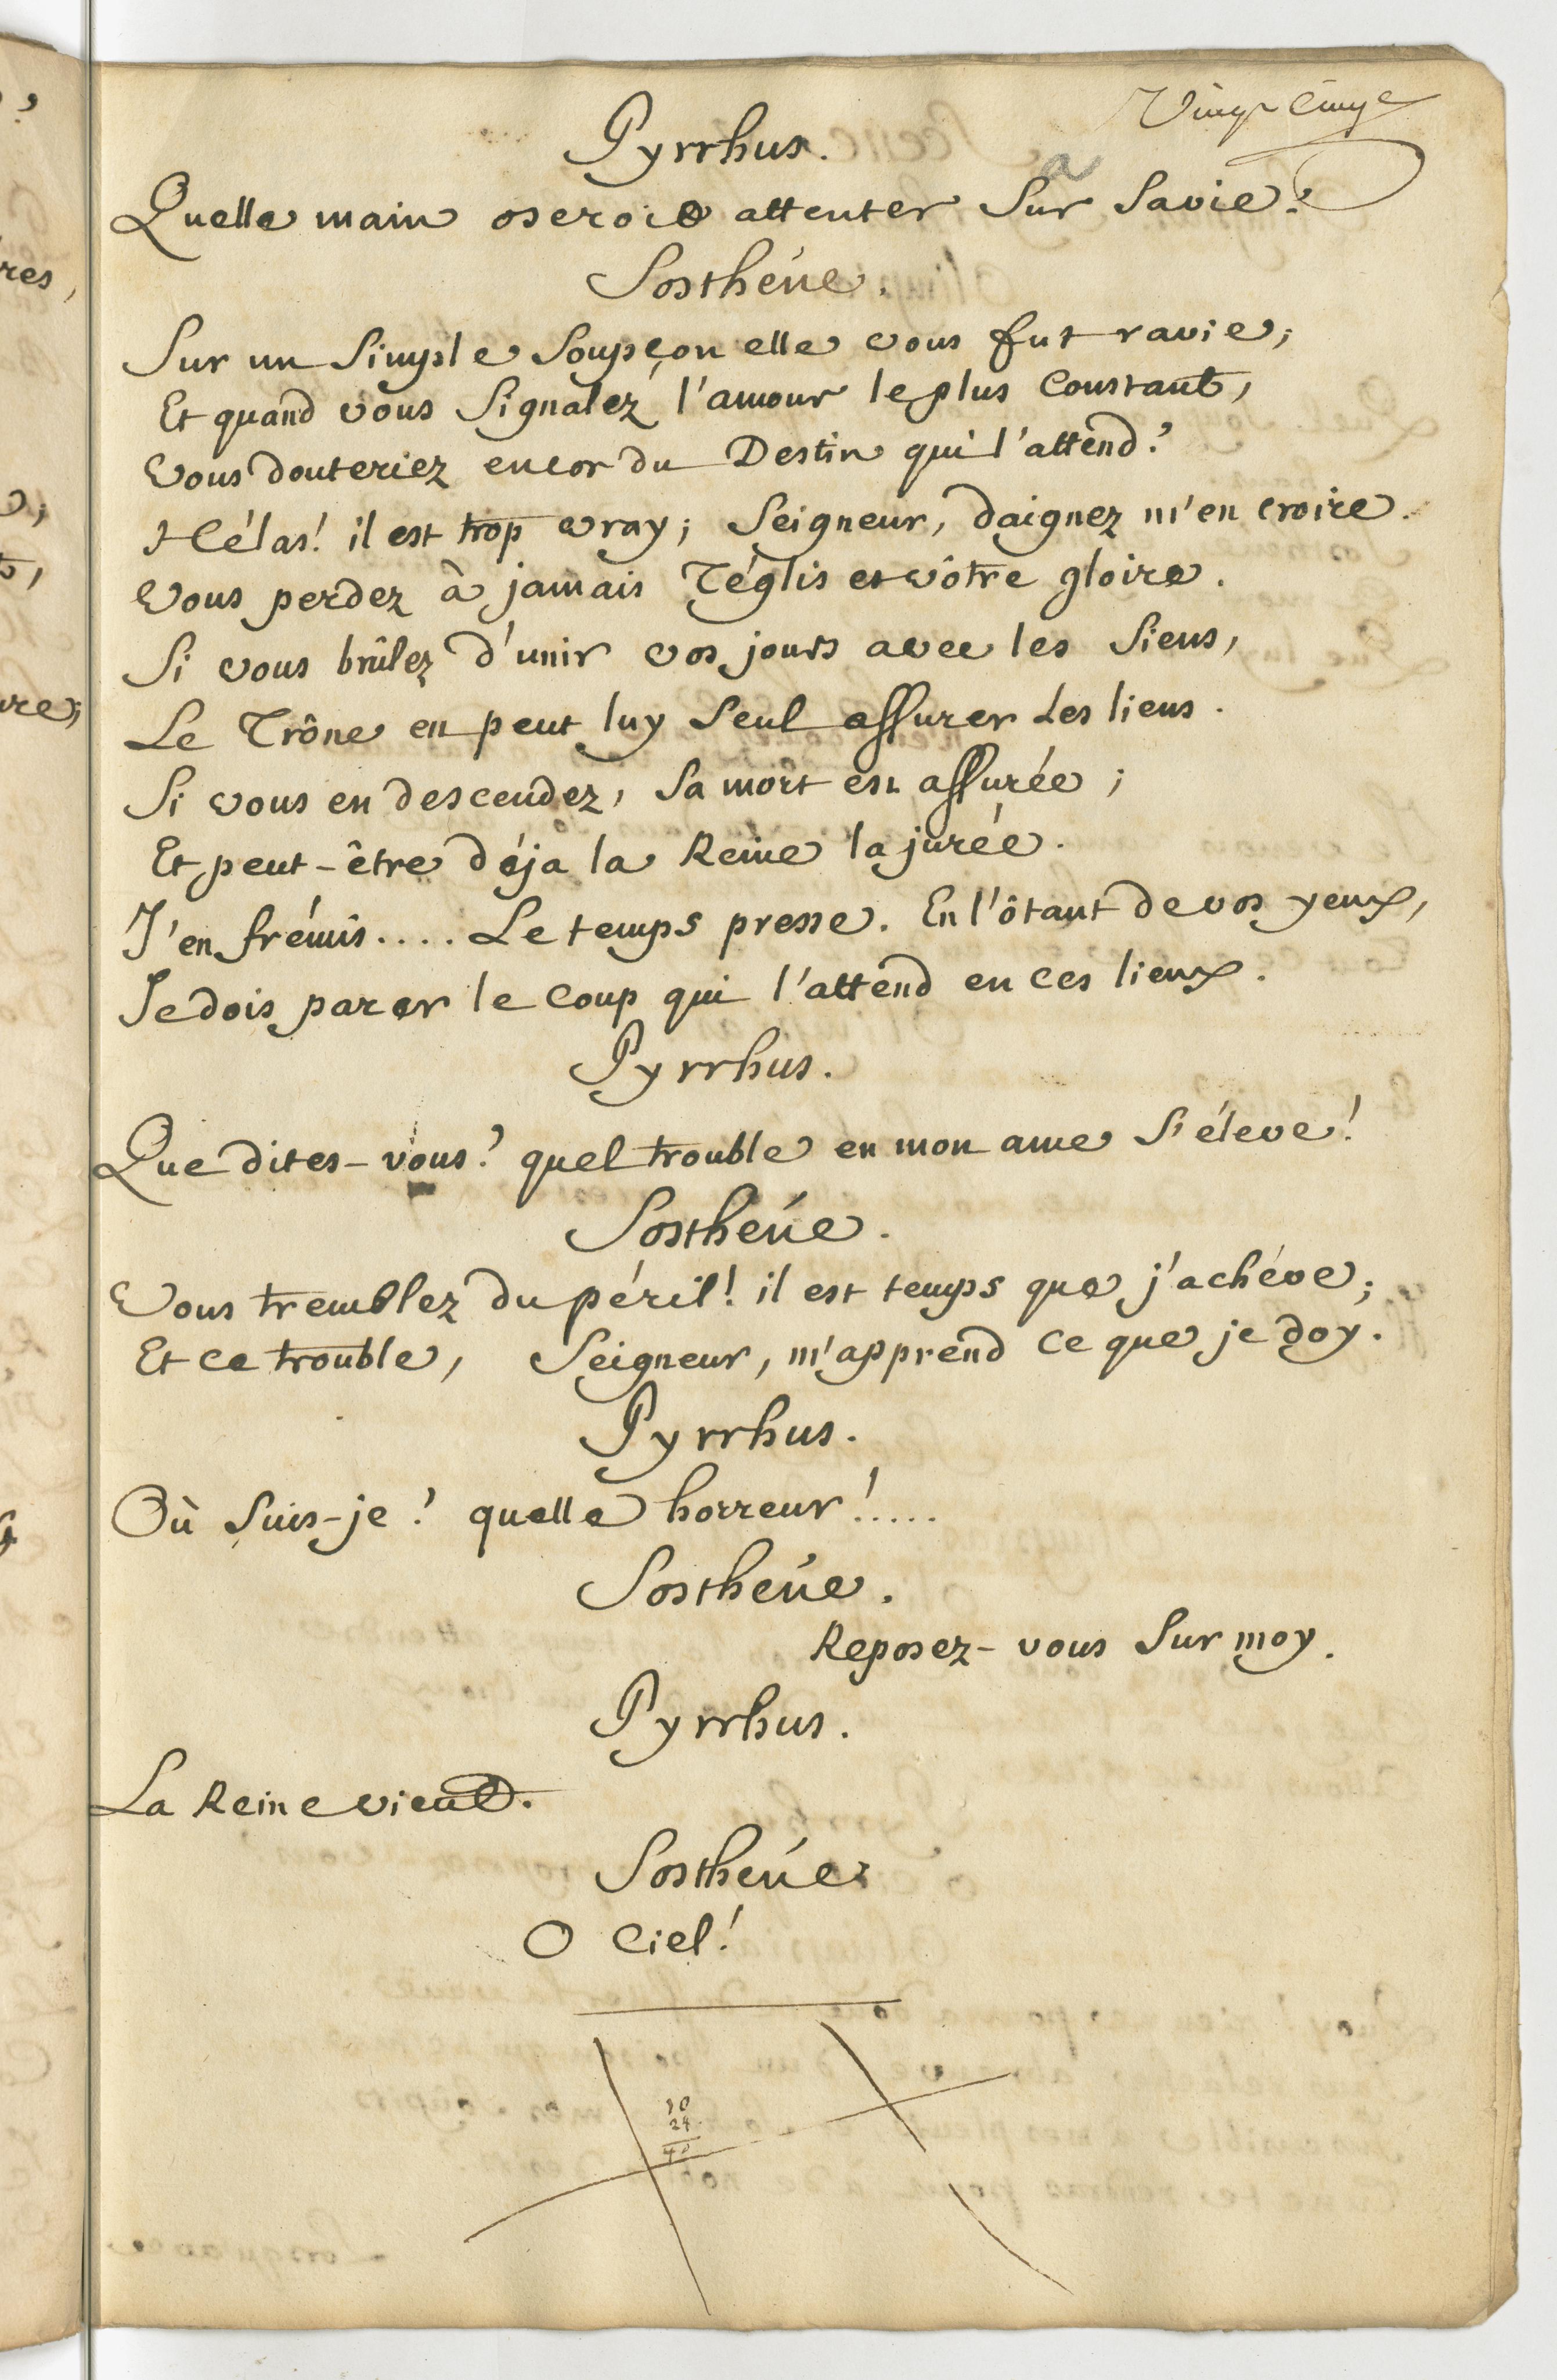 Vingt cinqe
Pyrrhus.
a
Quelle main oseroit attenter Sur Savie?
Sosthéne.
Sur un Simple Soupçon elle vous fut ravie;
Et quand vous Signalez l'amour le plus Constant,
Vous douteriez encor du Destin qui l'attend?
Hélas! il est trop vray; Seigneur, daignez m'en croire.
Vous perdez à jamais Téglis et vôtre gloire.
Si vous brûlez d'unir vos jours avec les Siens,
Le Trône en peut luy Seul assurer Les liens.
Si vous en descendez, Sa mort est assurée;
Et peut-être déja la Reine la jurée.
J'en frémis.... Le temps presse. En l'ôtant de vos yeux,
Je dois parer le Coup qui l'attend en Ces lieux.
Pyrrhus.
Que dites-vous? quel trouble en mon ame S'éleve!
Sosthéne.
Vous tremblez du péril! il est temps que j'achéve;
Et ce trouble, Seigneur, m'apprend Ce que je doy.
Pyrrhus.
Où Suis-je? quelle horreur!.....
Sosthéne.
Reposez-vous Sur moy.
Pyrrhus.
La Reine vient.
Sosthéne.
O Ciel!